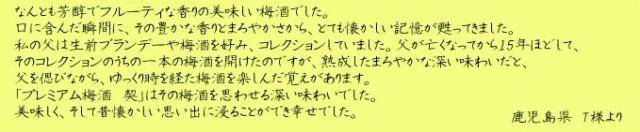 なんとも芳醇でフルーティな香りの美味しい梅酒でした。
口に含んだ瞬間に、その豊かな香りとまろやかさから、とても懐かしい記憶が甦ってきました。
私の父は生前ブランデーや梅酒を好み、コレクションしていました。父が亡くなってから15年ほどして、
そのコレクションのうちの一本の梅酒を開けたのですが、熟成したまろやかな深い味わいだと、
父を偲びながら、ゆっくり時を経た梅酒を楽しんだ覚えがあります。
「プレミアム梅酒　契」はその梅酒を思わせる深い味わいでした。
美味しく、そして昔懐かしい思い出に浸ることができ幸せでした。
鹿児島県　T様より